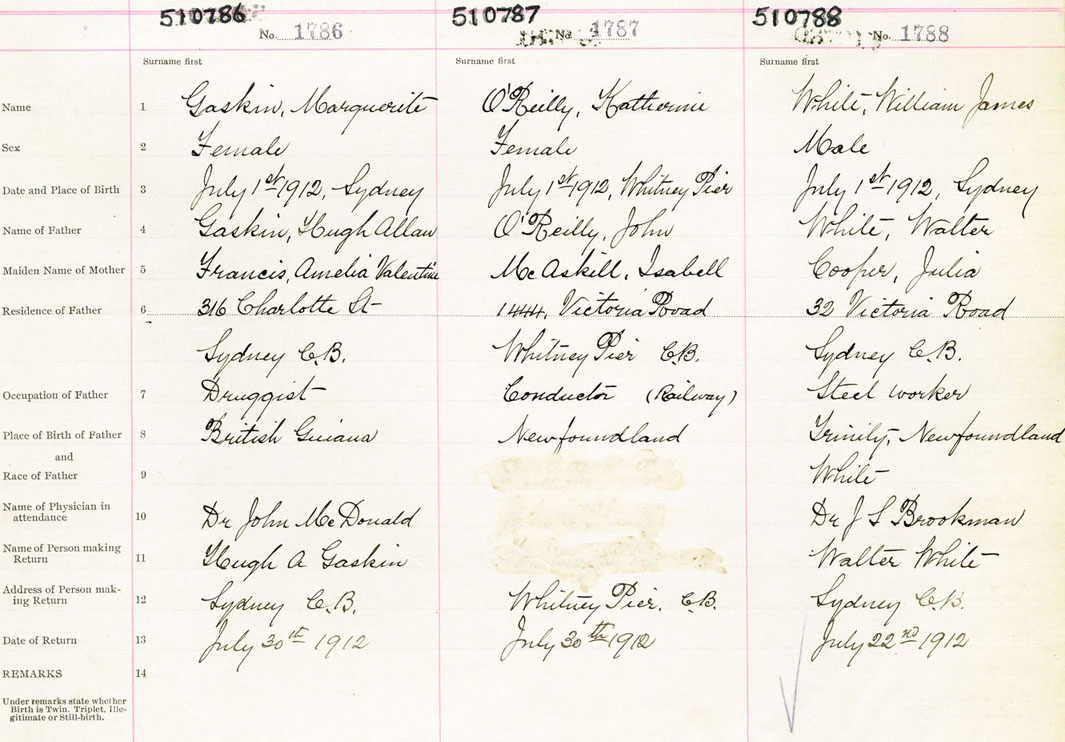 510786 510787 510788
No. 1786 No. 1787 No. 1788
Surname first Surname first Surname first
Name 1 Gaskin, Marguerite O'Reilly, Katherine White, William James
Sex 2 Female Female Male
Date and Place of Birth 3 July 1st 1912, Sydney July 1st 1912, Whitney Pier July 1st 1912, Sydney
Name of Father 4 Gaskin, Hugh Allan O'Reilly, John White, Walter
Maiden Name of Mother 5 Francis, Amelia Valentine McAskill, Isabell Cooper, Julia
Residence of Father 6 316 Charlotte St Victoria Road 32 Victoria Road
Sydney C.B. Whitney Pier C.B. Sydney C.B.
Occupation of Father 7 Druggist Conductor (Railway) Steel worker
Place of Birth of Father 8 British Guiana Newfoundland Trinity, Newfoundland
and
Race of Father 9 White
Name of Physician in
attendance 10 Dr John McDonald Dr J S Brookman
Name of Person making
Return 11 Hugh A Gaskin Walter White
Address of Person mak-
ing Return 12 Sydney C.B. Whitney Pier, C.B. Sydney C.B.
Date of Return 13 July 30th 1912 July 30th 1912 July 22nd 1912
REMARKS 14
Under remarks state whether
Birth is Twin. Triplet, Ille-
gitimate or Still-birth.